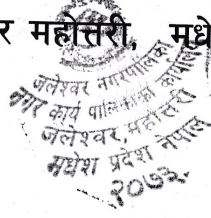 र महोत्तरी, मधे
जलेश्वर नगरपालिका
नगर कार्य पालिकाको कार्यालय
जलेश्वर, महोत्तरी
मधेश प्रदेश नेपाल
२०७३